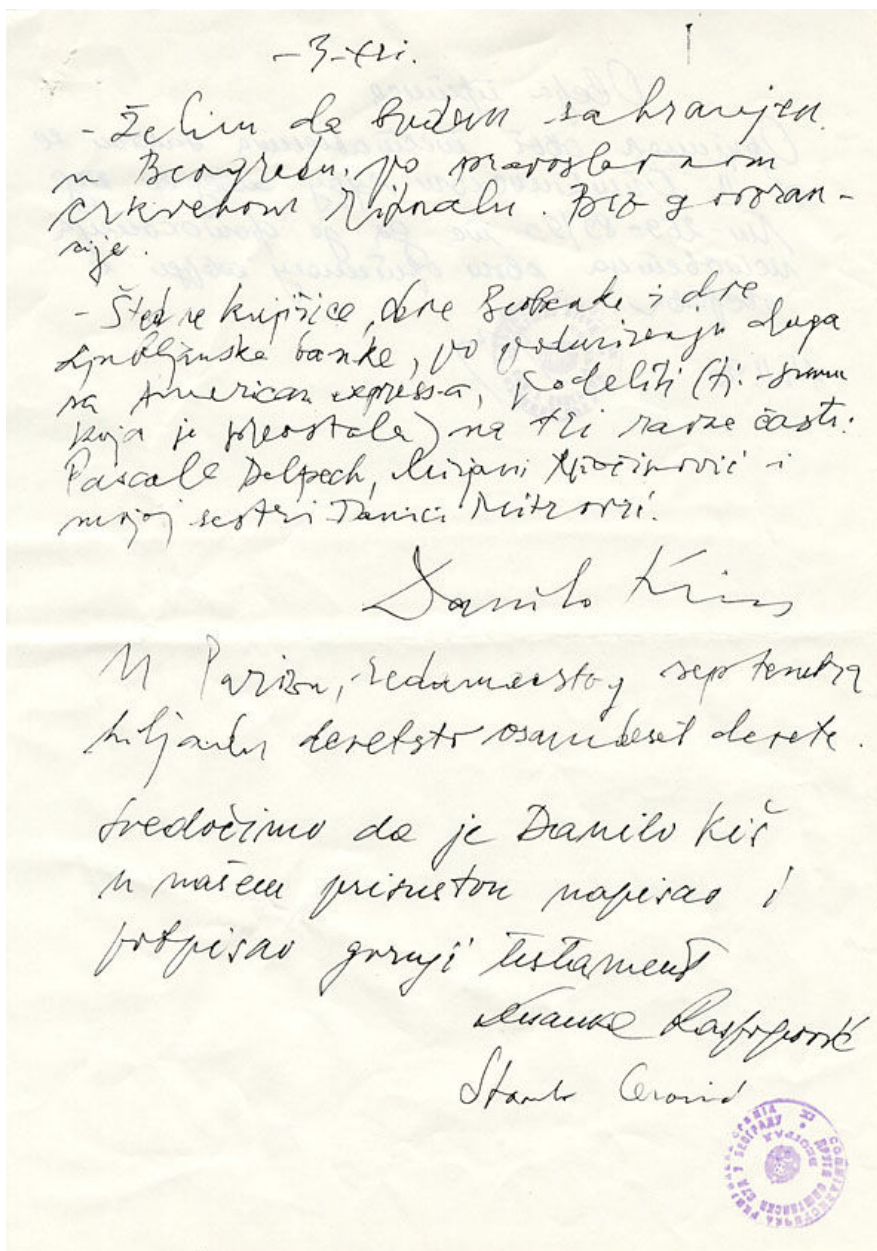 - 3 - tri.
- Želim da budem sahranjen
u Beogradu, po pravoslavnom
crkvenom ritualu. Bez govoran-
cije.
- Štedne knjižice, dve Beobanke i dve
Ljubljanske banke, po podmirenju duga
sa American expressa, podeliti (tj. sumu
koja je preostala) na tri ravne časti:
Pascale Delpech, Mirjani Miočinović i
mojoj sestri Danici Mitrović.
Danilo Kiš
U Parizu, sedamnaestog septembra
hiljadu devetsto osamdeset devete.
Svedočimo da je Danilo Kiš
u našem prisustvu napisao i
potpisao gornji testament
Stanko Cerović